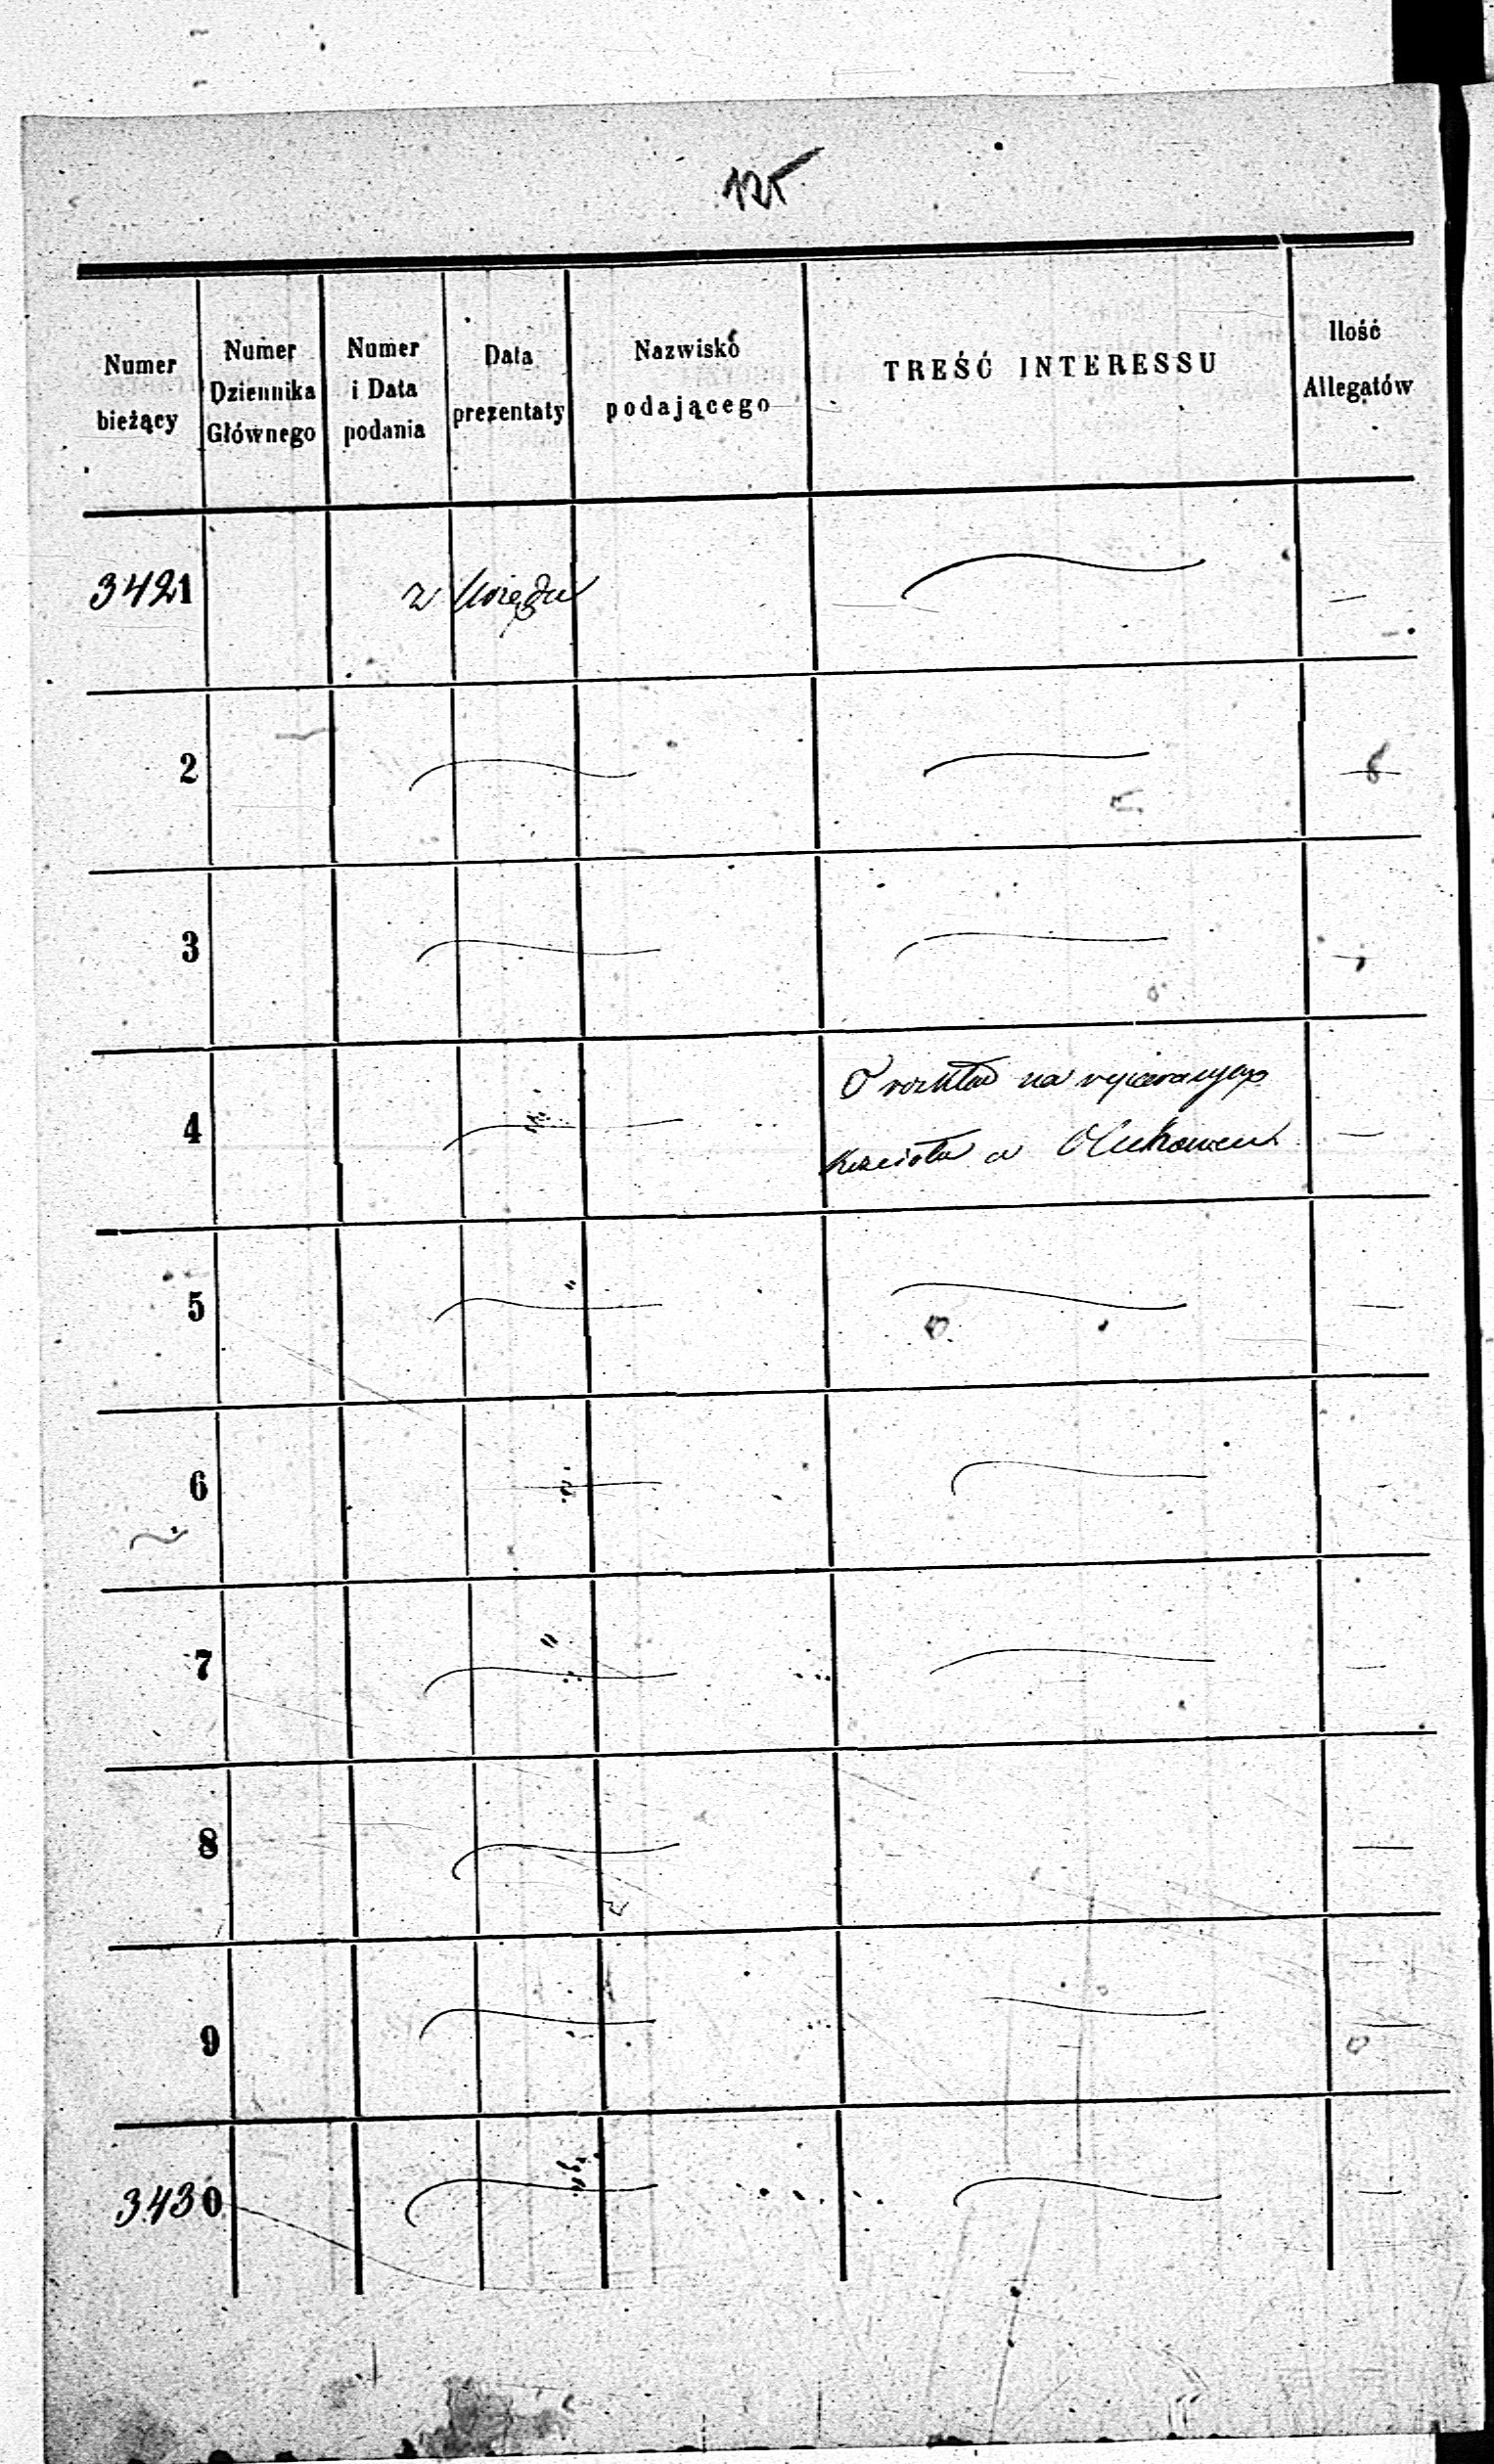 125
Numer bieżący
Numer Dziennika Głównego
Numer i Data podania
Data prezentaty
Nazwisko podającego
TREŚĆ INTERESSU
Ilość Allegatów
3421 z Urzędu
2
3
4 O rozkład na
Kościoła w
5
6
7
8
9
3430